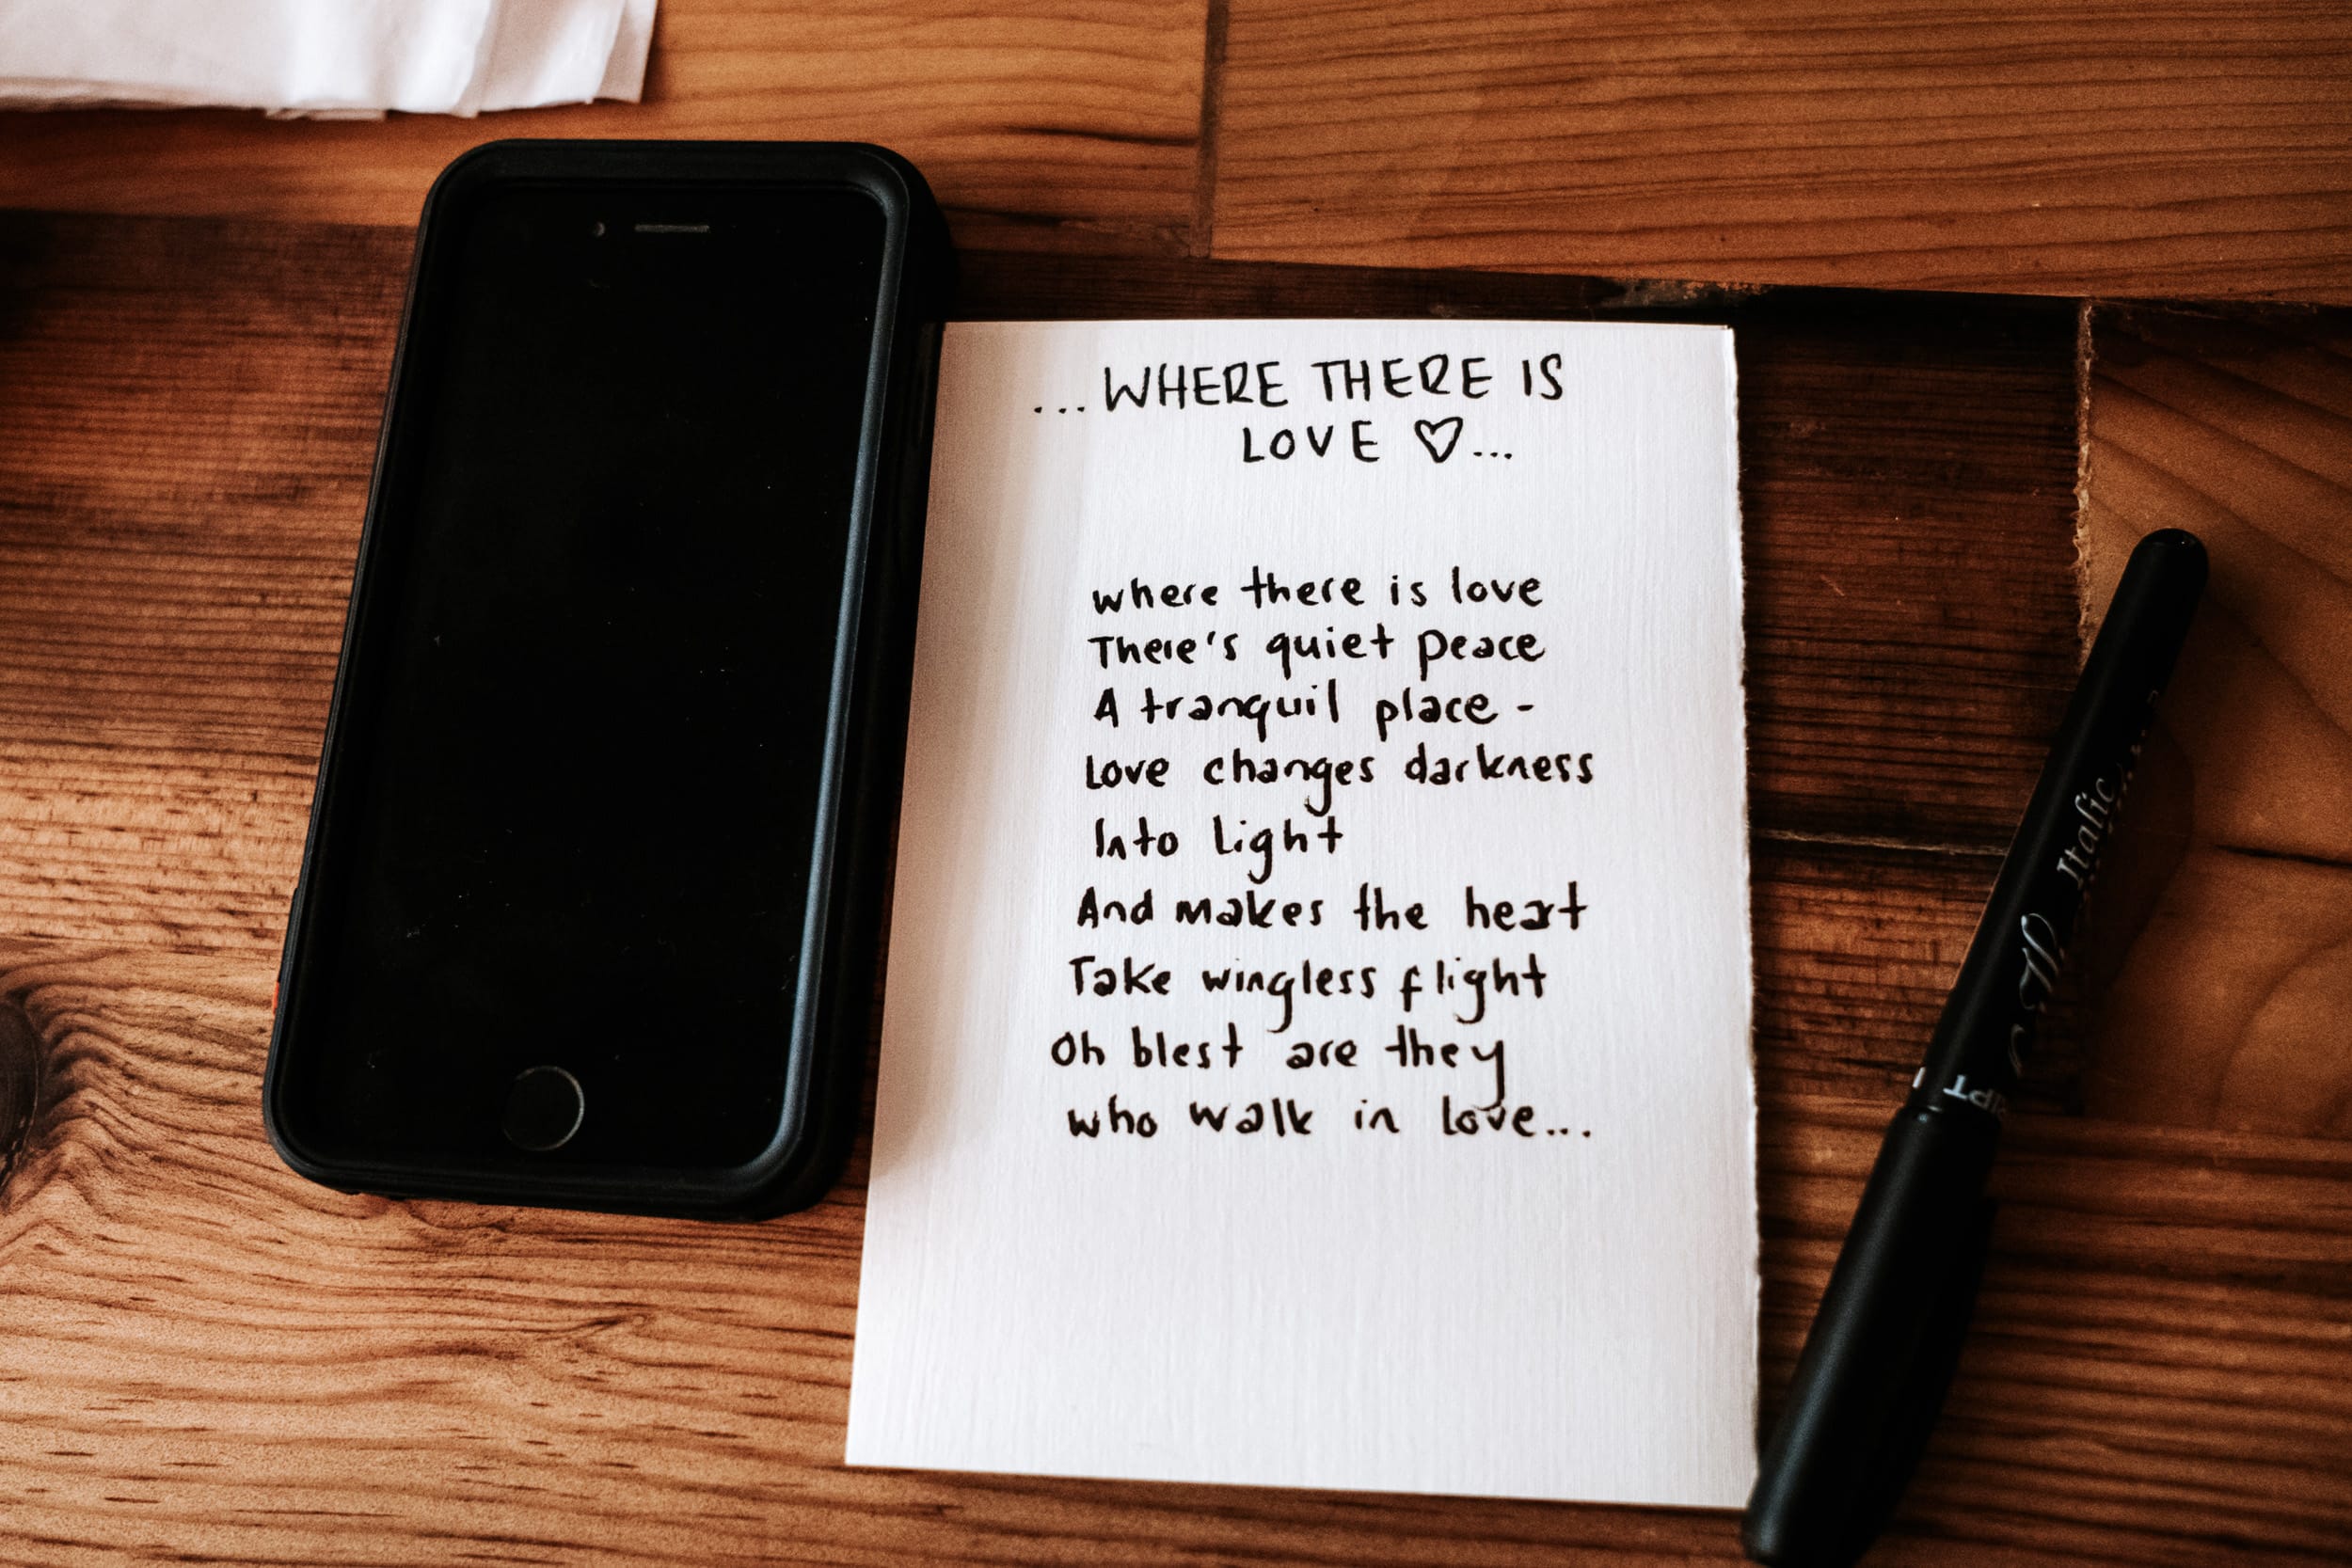 ...WHERE THERE IS
LOVE ♡...
where there is love
There's quiet peace
A tranquil place -
Love changes darkness
Into Light
And makes the heart
Take wingless flight
Oh blest are they
who walk in love...
Italic